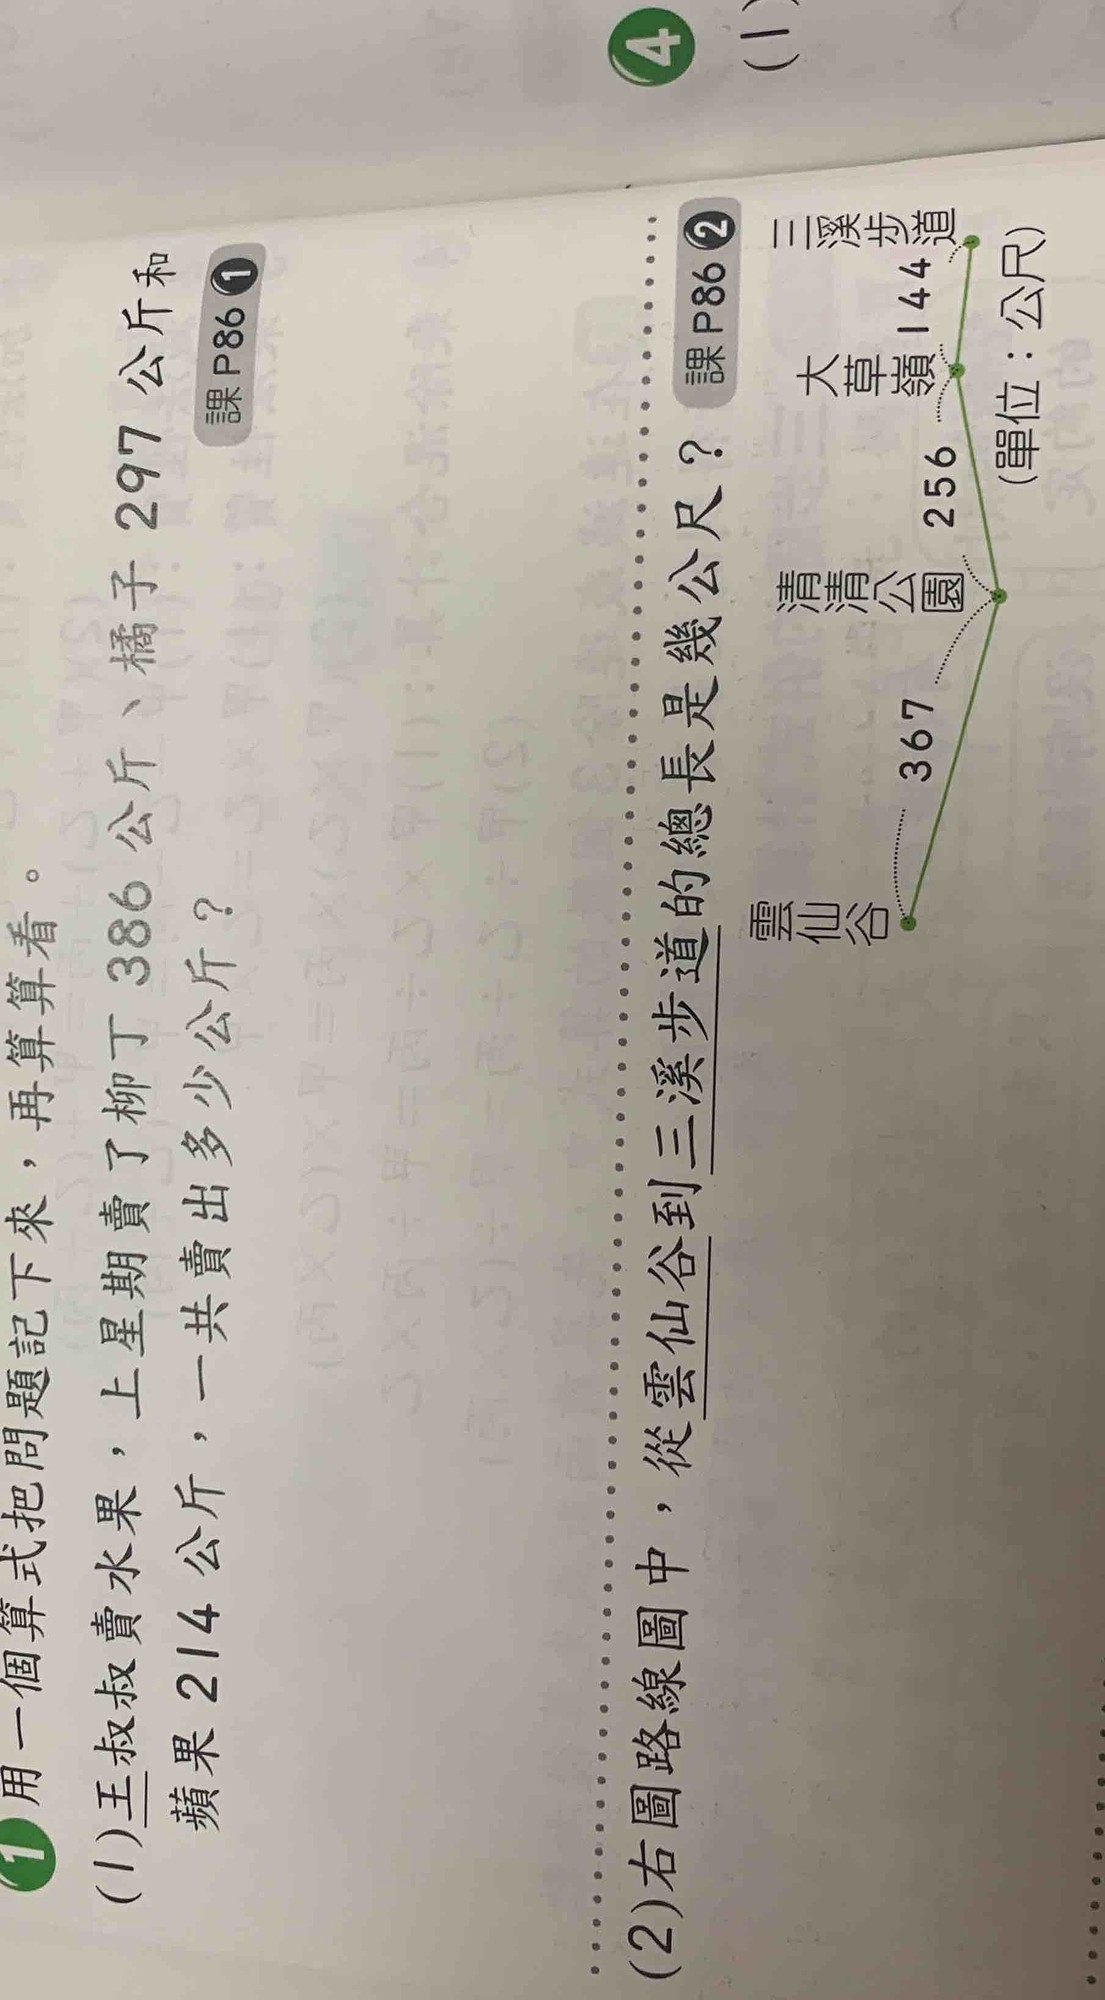 1 用一個算式把問題記下來，再算算看。
(1)王叔叔賣水果，上星期賣了柳丁 386 公斤、橘子 297 公斤和
蘋果 214 公斤，一共賣出多少公斤？
課 P86 1
(2)右圖路線圖中，從雲仙谷到三溪步道的總長是幾公尺？
課 P86 2
雲仙谷
367
清清公園
256
大草嶺
144
三溪步道
(單位：公尺)
4
(1)